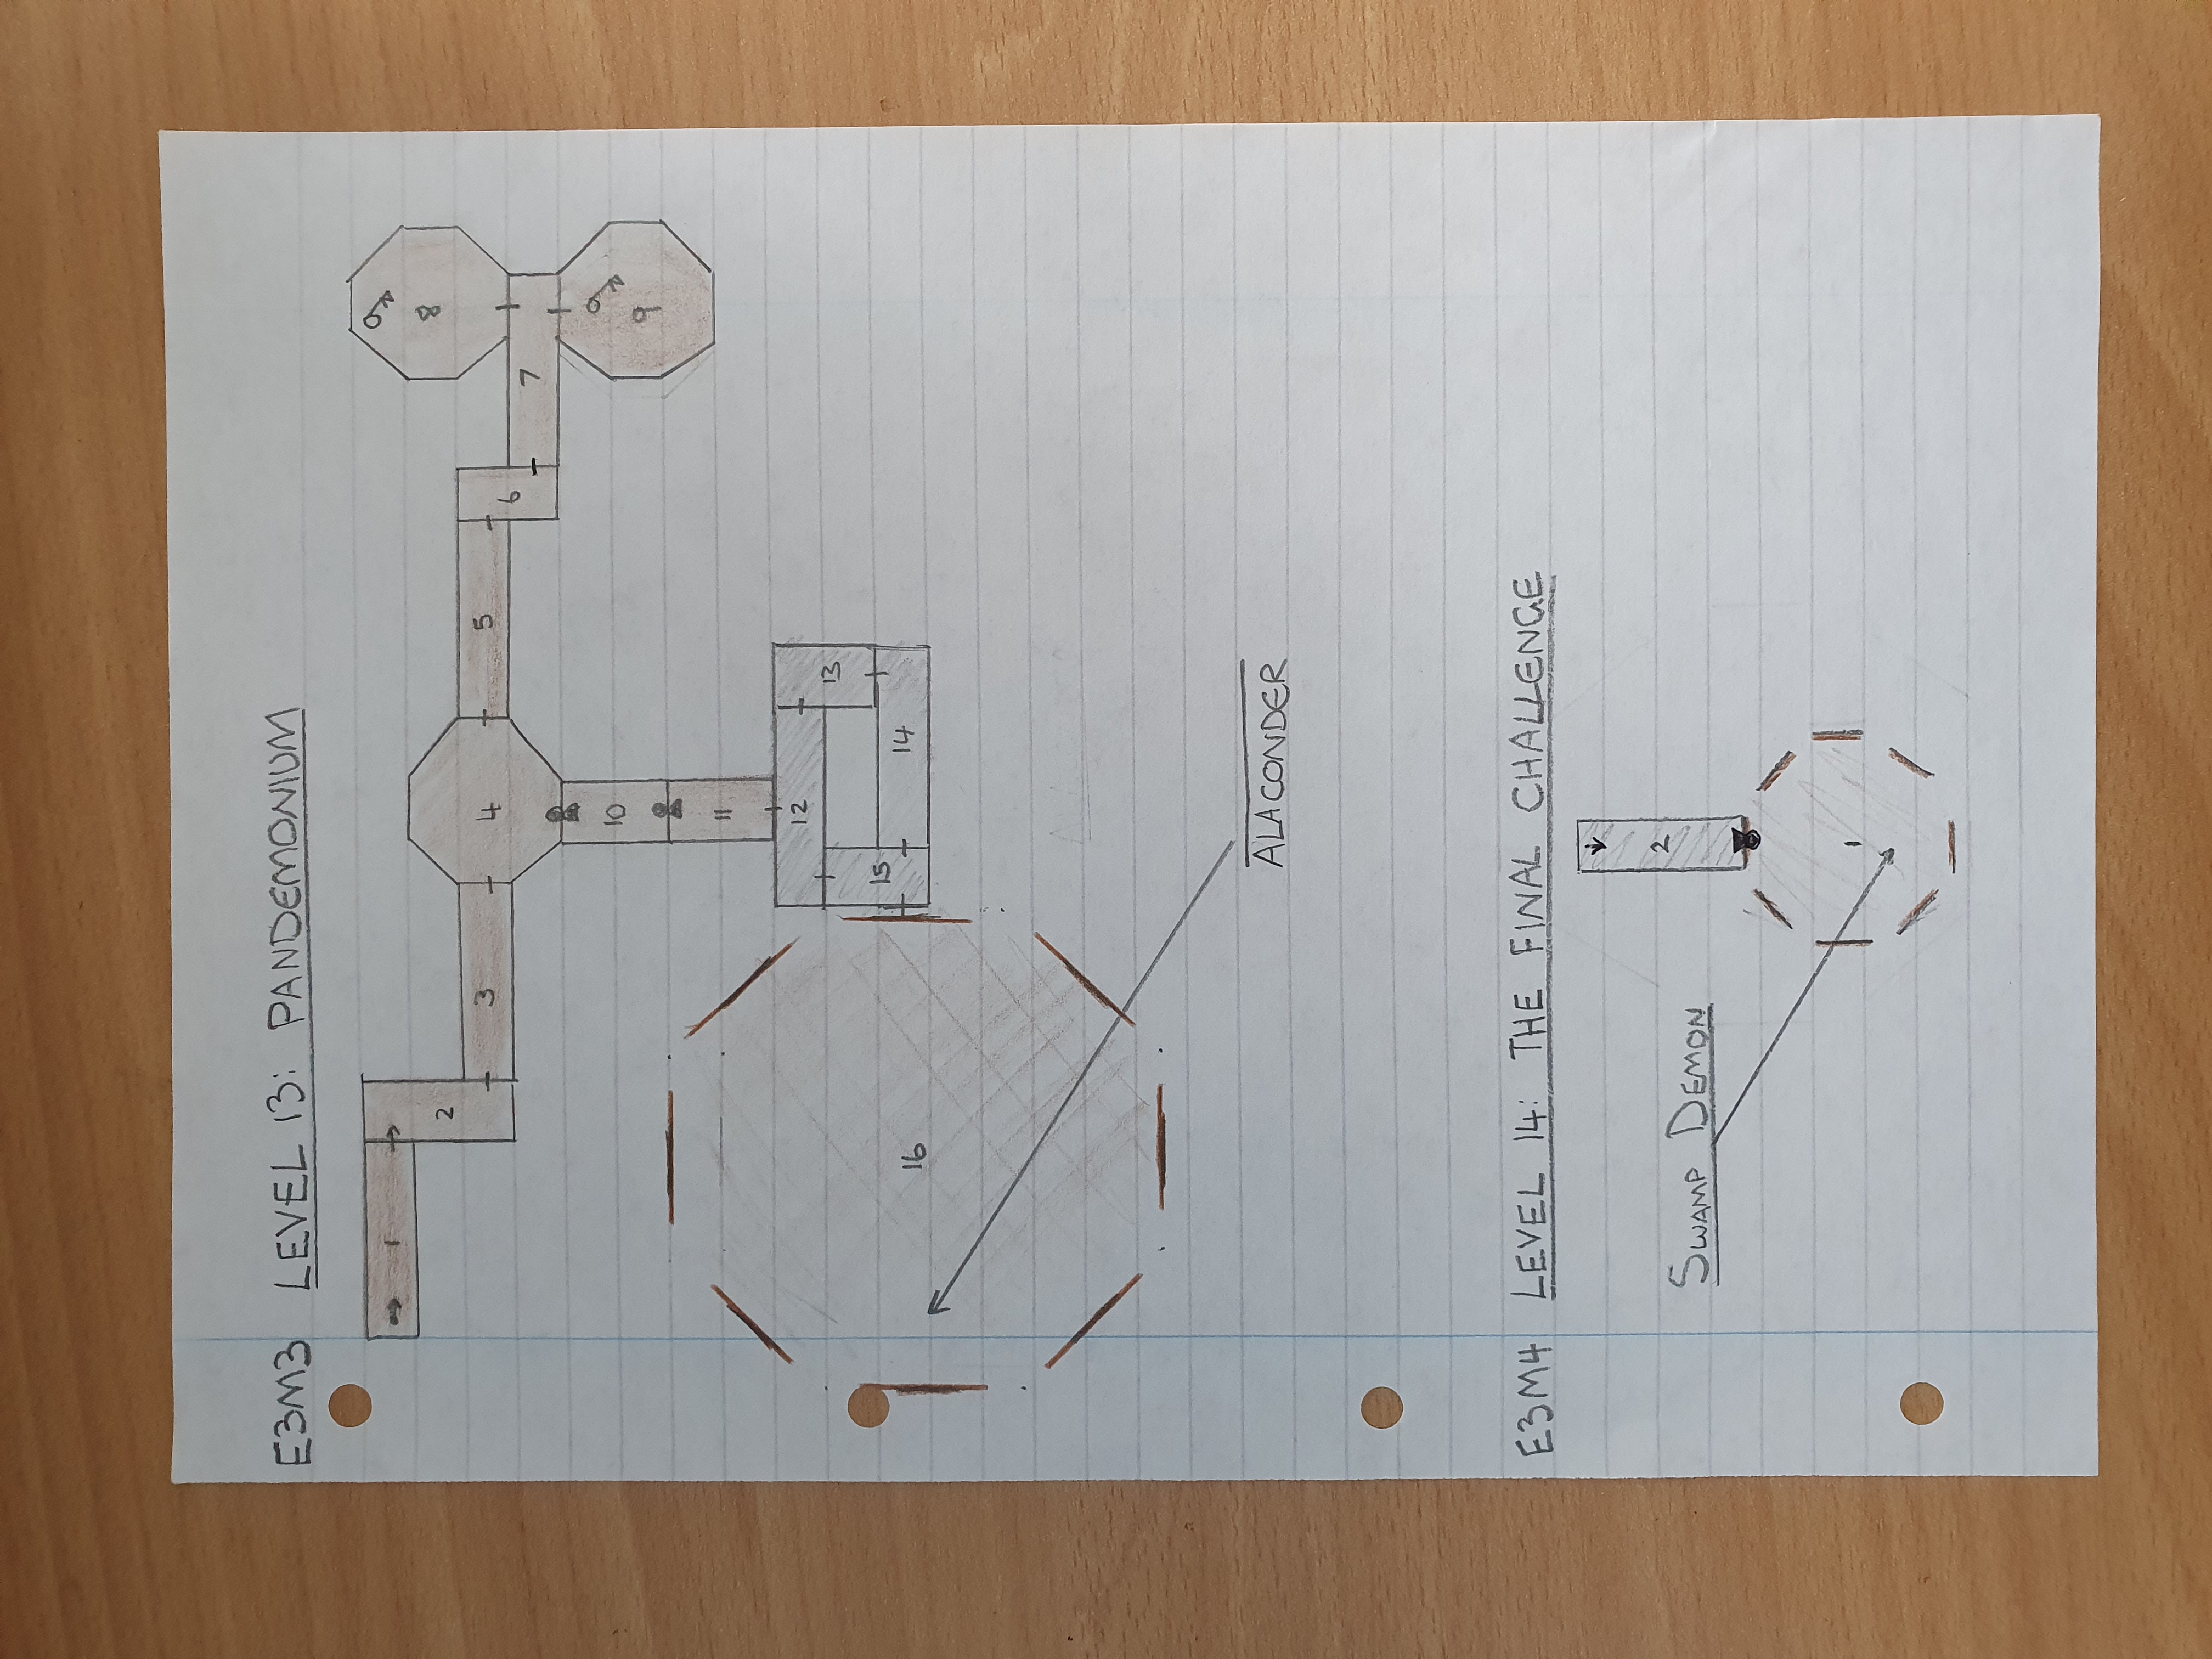 E3M3 LEVEL 13: PANDEMONIUM
1
2
3
4
5
6
7
8
9
10
11
12
13
14
15
16
ALACONDER
E3M4 LEVEL 14: THE FINAL CHALLENGE
2
SWAMP DEMON
1